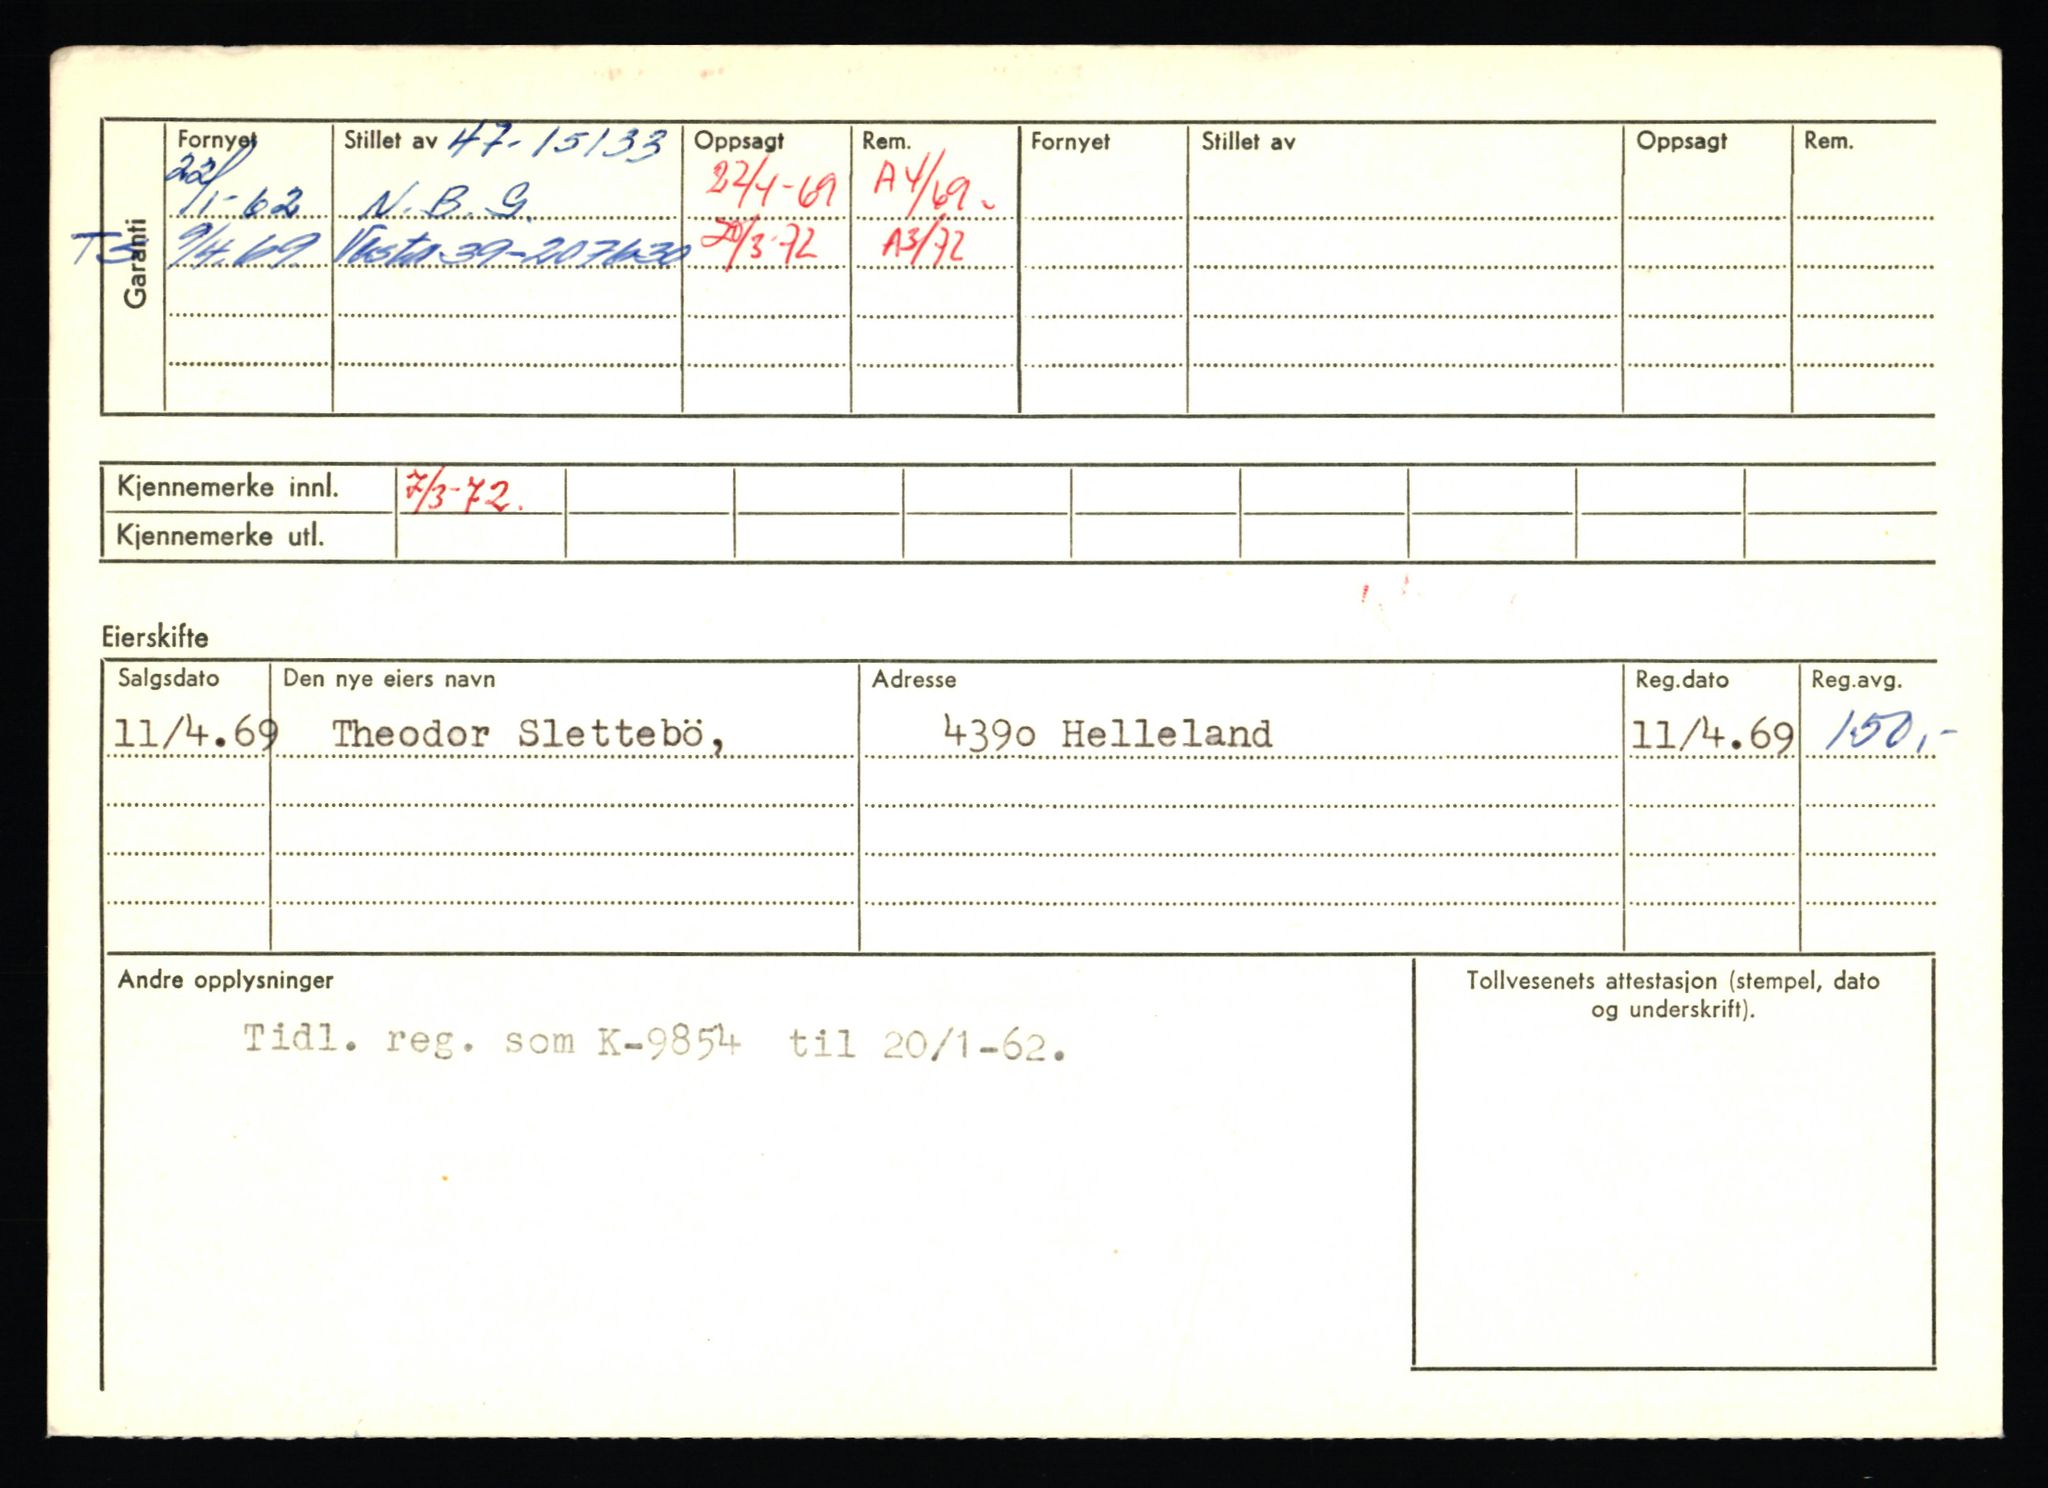 Garanti
Fornyet Stillet av 47-15133 Oppsagt Rem. Fornyet Stillet av Oppsagt Rem.
22/1-62 N.B.G. 22/4-69 A4/69.
9/4.69 Vesta 39-207630 20/3-72 A3/72
Kjennemerke innl. 7/3-72.
Kjennemerke utl.
Eierskifte
Salgsdato Den nye eiers navn Adresse Reg.dato Reg.avg.
11/4.69 Theodor Slettebö, 439o Helleland 11/4.69 150,-
Andre opplysninger
Tidl. reg. som K-9854 til 20/1-62.
Tollvesenets attestasjon (stempel, dato
og underskrift).